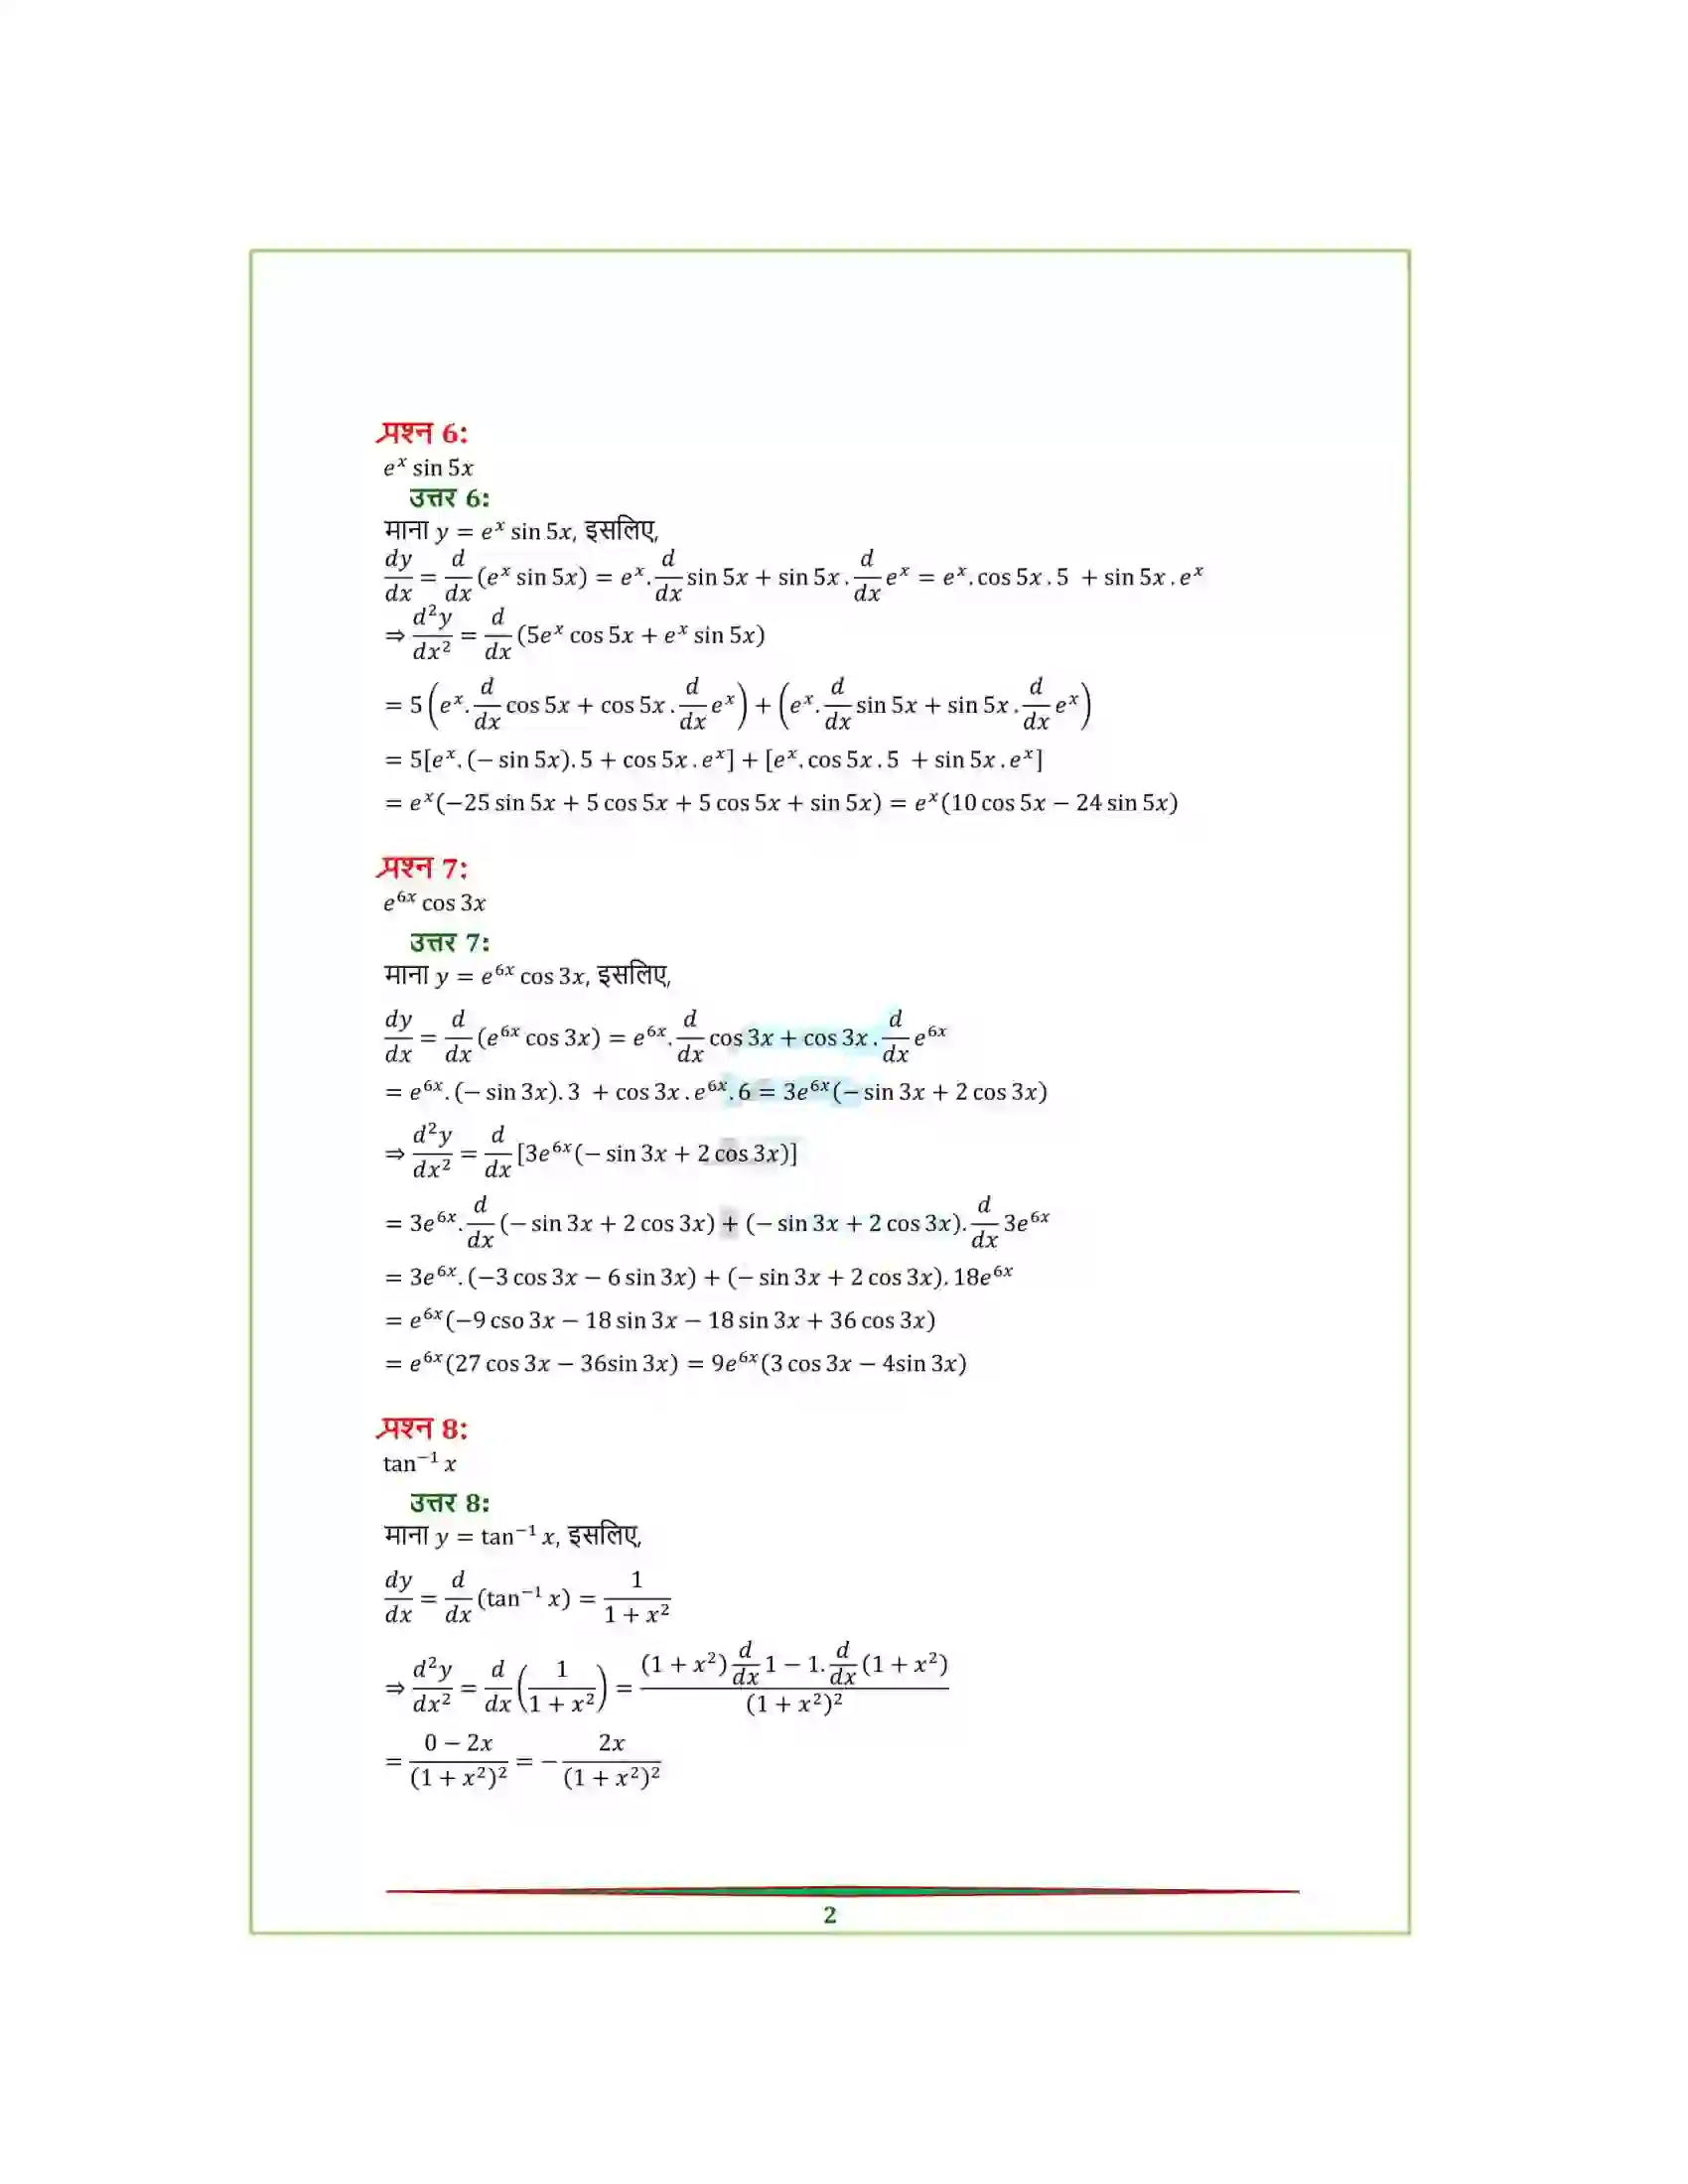 प्रश्न 6:
e^x sin 5x
उत्तर 6:
माना y = e^x sin 5x, इसलिए,
dy/dx = d/dx (e^x sin 5x) = e^x. d/dx sin 5x + sin 5x . d/dx e^x = e^x. cos 5x . 5 + sin 5x . e^x
⇒ d²y/dx² = d/dx (5e^x cos 5x + e^x sin 5x)
= 5 (e^x. d/dx cos 5x + cos 5x . d/dx e^x) + (e^x. d/dx sin 5x + sin 5x . d/dx e^x)
= 5[e^x. (− sin 5x). 5 + cos 5x . e^x] + [e^x. cos 5x . 5 + sin 5x . e^x]
= e^x(−25 sin 5x + 5 cos 5x + 5 cos 5x + sin 5x) = e^x(10 cos 5x − 24 sin 5x)
प्रश्न 7:
e^6x cos 3x
उत्तर 7:
माना y = e^6x cos 3x, इसलिए,
dy/dx = d/dx (e^6x cos 3x) = e^6x. d/dx cos 3x + cos 3x . d/dx e^6x
= e^6x. (− sin 3x). 3 + cos 3x . e^6x. 6 = 3e^6x(− sin 3x + 2 cos 3x)
⇒ d²y/dx² = d/dx [3e^6x(− sin 3x + 2 cos 3x)]
= 3e^6x. d/dx (− sin 3x + 2 cos 3x) + (− sin 3x + 2 cos 3x). d/dx 3e^6x
= 3e^6x. (−3 cos 3x − 6 sin 3x) + (− sin 3x + 2 cos 3x). 18e^6x
= e^6x(−9 cso 3x − 18 sin 3x − 18 sin 3x + 36 cos 3x)
= e^6x(27 cos 3x − 36sin 3x) = 9e^6x(3 cos 3x − 4sin 3x)
प्रश्न 8:
tan⁻¹ x
उत्तर 8:
माना y = tan⁻¹ x, इसलिए,
dy/dx = d/dx (tan⁻¹ x) = 1/(1 + x²)
⇒ d²y/dx² = d/dx (1/(1 + x²)) = ((1 + x²) d/dx 1 − 1. d/dx (1 + x²))/(1 + x²)²
= (0 − 2x)/(1 + x²)² = − 2x/(1 + x²)²
2